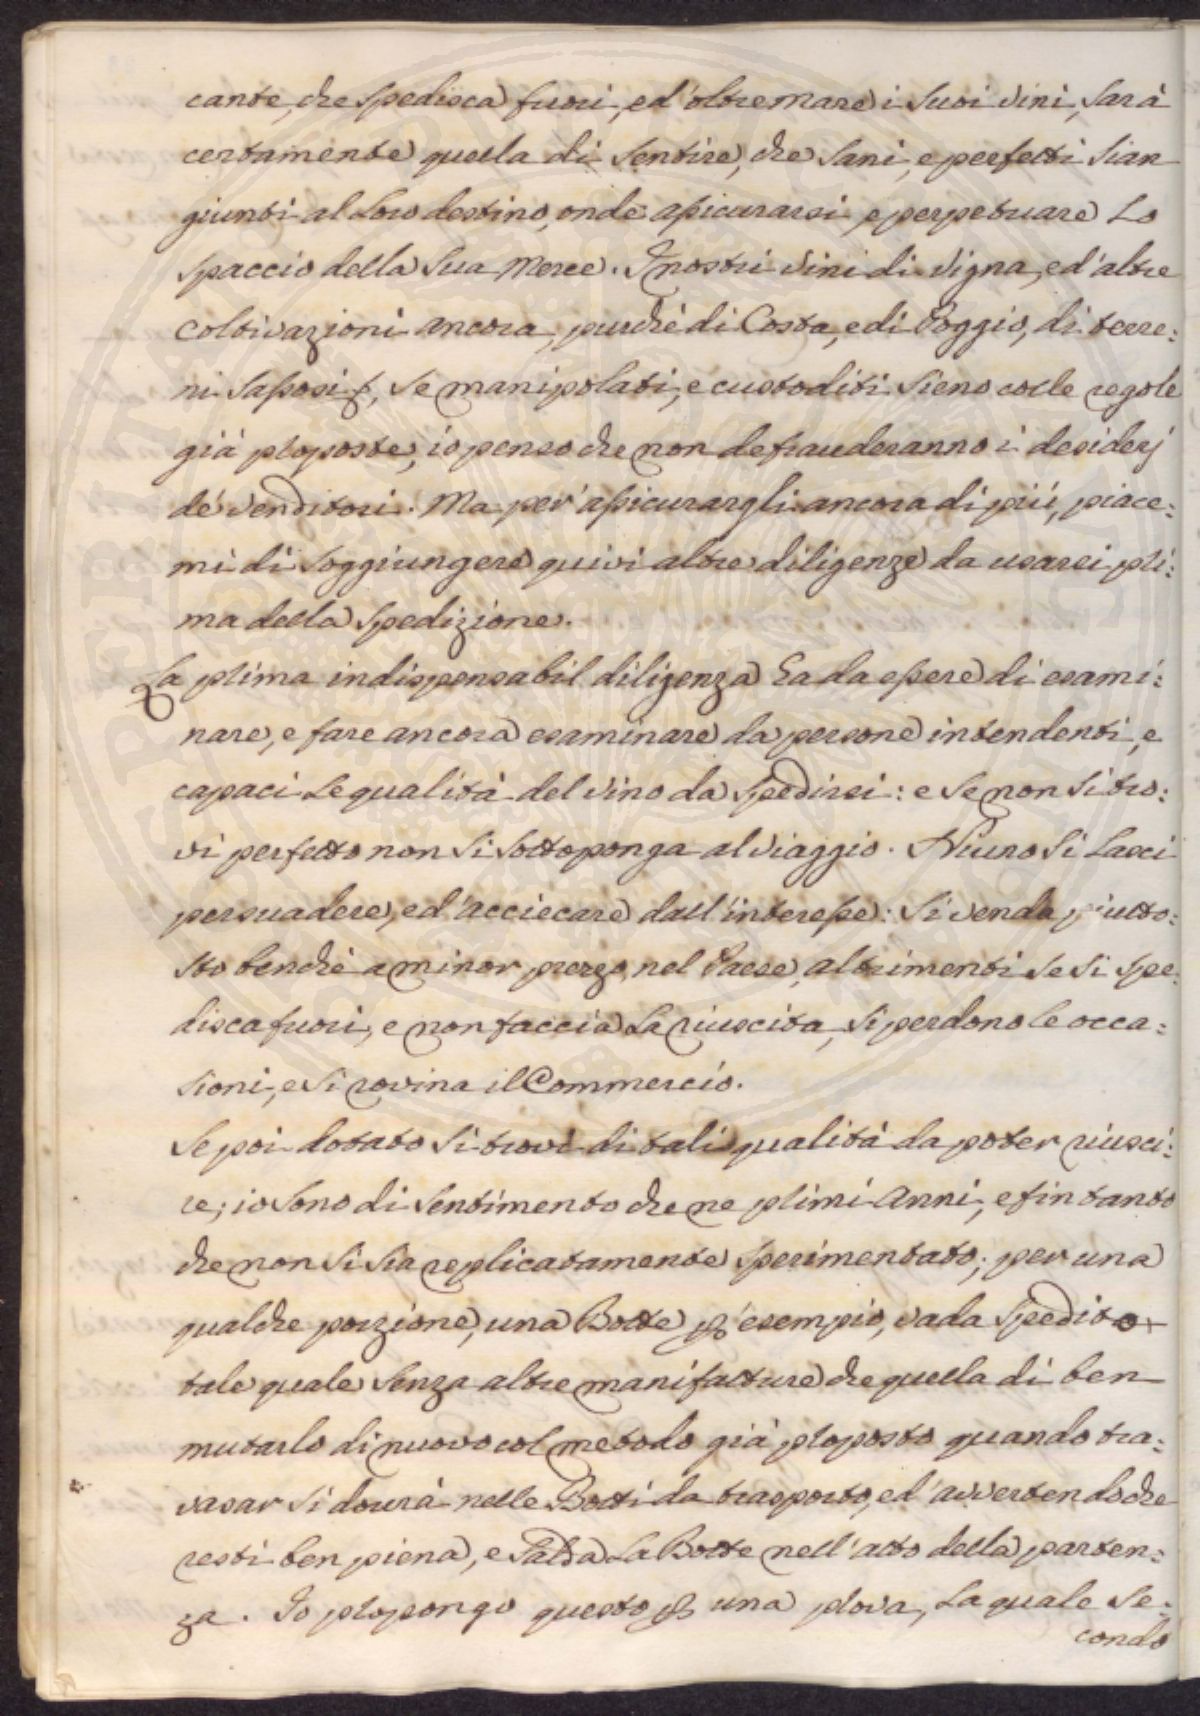 cante, che spedisca fuori, ed'oltremare i suoi vini, sarà
certamente quella di sentire, che sani, e perfetti sian
giunti al loro destino, onde assicurarsi, e perpetuare lo
spaccio della sua merce. I nostri vini di vigna, ed'altre
coltivazioni ancora, purché di Costa, e di Poggio, di terre:
ni sassosi, se manipolati, e custoditi sieno colle regole
già proposte, io penso che non defrauderanno i desiderj
de' venditori. Ma per' assicurargli ancora di più, piace:
mi di soggiungere quivi altre diligenze da usarsi pri:
ma della spedizione.
La prima indispensabil diligenza ha da essere di esami:
nare, e fare ancora esaminare da persone intendenti, e
capaci le qualità del vino da spedirsi: e se non si tro:
vi perfetto non si sottoponga al viaggio. Niuno si lasci
persuadere, ed'acciecare dall'interesse: si venda piutto:
sto benché a minor prezzo, nel Paese, altrimenti se si spe:
disca fuori, e non faccia la riuscita, si perdono le occa:
sioni, e si rovina il Commercio.
Se poi dotato si trovi di tali qualità da poter riusci:
re; io sono di sentimento che ne primi Anni, e fin tanto
che non si sia replicatamente sperimentato; per una
qualche porzione, una Botte p esempio, vada spedito
tale quale senza altre manifatture che quella di ben
mutarlo di nuovo col metodo già proposto quando tra:
vasar si dovrà nelle Botti da trasporto, ed'avvertendo che
resti ben piena, e salda la Botte nell'atto della parten:
za. Io propongo questo p una prova, la quale se:
condo